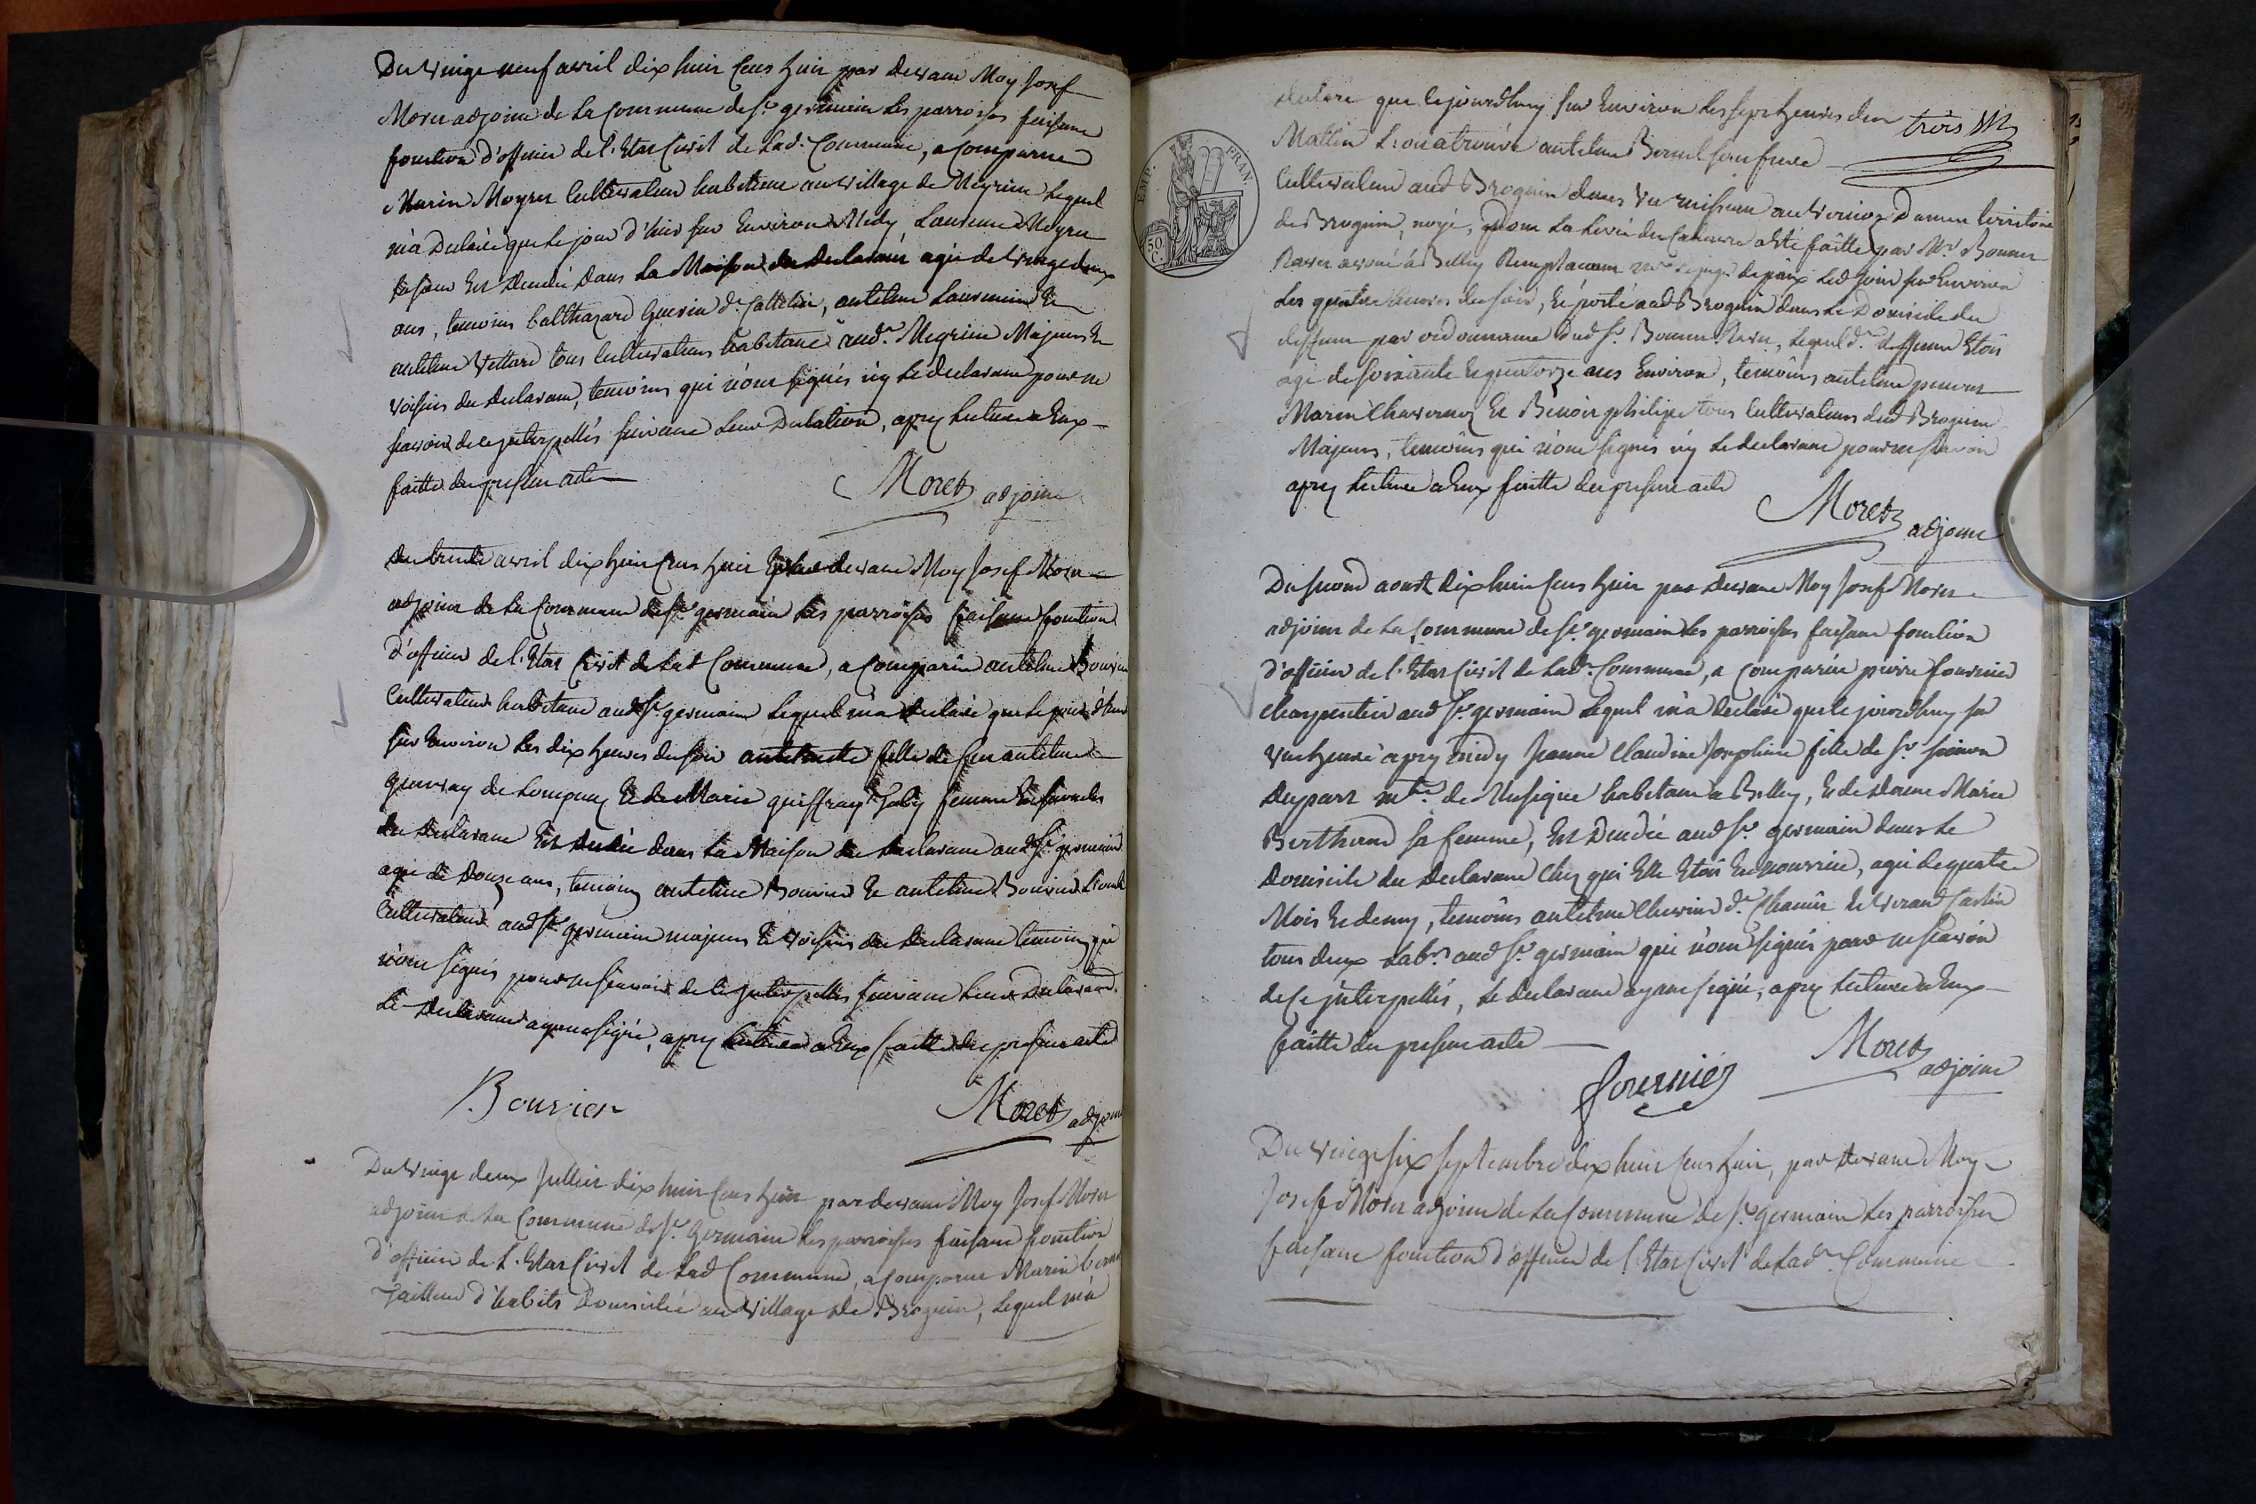 Du vinge neuf avril dix huir Cens huir par devane Moy Josef
Morer adjoine de la Commune de St germain les parroises faisane
fonction d'officier de l'Etar Civil de lad. Commune, a comparue
Marin Meyrer Cultivateur habitane au village de Meyrieu lequel
m'a Declaré que le jour d'hier sur Environ Midy, Laurence Meyrer
sa sœur Est Decedée dans la Maison du Declarant agée de vinge deux
ans, temoins balthazard Guerin dt Cattelin, antelme Laurencin Et
antelme Vettard tous Cultivateurs habitans aud. Meyrieu Majeurs Et
voisins du Declarans, temoins qui n'onr signés n'y le declarane pour ne
savoir de ce jnterpellés suivane leur Declation, apres lecture a Eux
faitte du presene acte
Morer adjoine
du trente avril dix huir Cens huir par devane Moy Josef Morer
adjoine de la Commune de St germain les parroises faisane fonction
d'officier de l'Etar Civil de lad Commune, a comparue antelme Bouvier
Cultivateur habitane aud St germain lequel m'a declaré que le jour d'hier
sur Environ les dix heures du soir fille de feu antelme
de Et de Marie femme En secondes
du Declarane Est decedée dans la Maison du declarane aud St germain
agée de Douze ans, temoins antelme Bouvier Et antelme Bouvier
Cultivateurs aud St germain majeurs Et voisins du Declarane temoins qui
n'onr signés pour ne scavoir de ce jnterpellés suivane leur Declarane.
Le Declarane ayane signé, apres lecture a Eux faitte du presene acte
Bouvier
Morer adjoine
Du vinge deux Julliet dix huir Cens huir par devane Moy Josef Morer
adjoine de la Commune de St germain les parroises faisane fonction
d'officier de l'Etar Civil de lad Commune, a comparue Marin
Tailleur d'habits Domicilié au village de Brognin, lequel m'a
declaré que cejourdhuy sur Environ les sept heures du
trois
Mattin L'on a trouvé antelme
Cultivateur aud Brognin dans un ruisseau au territoire
de Brognin, noyé, donr la levée du Cadavre a été faitte par Mr Bonnet
Raver avoué à Belley Remplacane Mr le juge de paix led jour sur Environ
les quatre heures du soir, Et porté aud Brognin dans le Domicile du
deffunt par ordonnance dud Sr Bonnet Raver, lequel dt deffunt Etoit
agé de soixante Et quatorze ans Environ, temoins antelme
Marin Et Benoir philipe tous Cultivateurs dud Brognin
Majeurs, temoins qui n'onr signés n'y le declarane pour ne scavoir
apres lecture a Eux faitte du presene acte
Morer adjoine
Du second aoust dix huir Cens huir par devane Moy Josef Morer
adjoine de la Commune de St germain les parroises faisane fonction
d'officier de l'Etar Civil de lad. Commune, a comparue pierre fournier
charpentier aud St germain lequel m'a declaré que le jourdhuy sur
une heure apres midy Jeanne Claudine Josephine fille de Sr simon
Deyparr mtre de Musique habitane a Belley, Et de dame Marie
Berthand sa femme, Est Decedée aud St germain dans le
Domicile du declarane Chez qui Elle Etoit En nourrice, agée de quatre
Mois Et demy, temoins antelme dt Et
tous deux Labrs aud St germain qui n'onr signés pour ne scavoir
de ce jnterpellés, le declarane ayane signé, apres lecture a Eux
faitte du presene acte
fournier
Morer adjoine
Du vinge six septembre dix huir Cens huir, par devane Moy
Josef Morer adjoine de la Commune de St germain les parroises
faisane fonction d'officier de l'Etar Civil de lad. Commune
EMP. FRAN.
50 C.